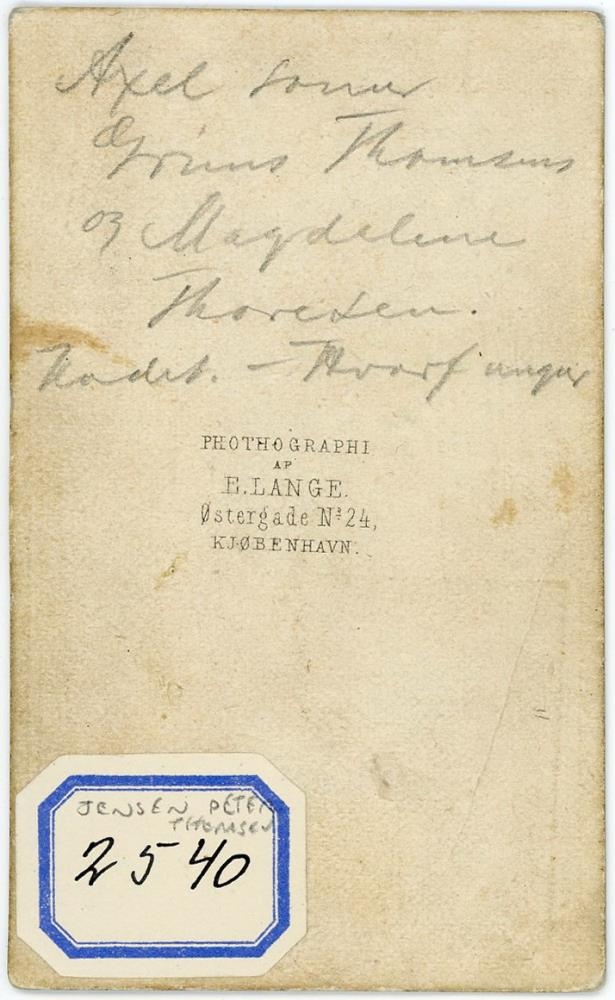 Axel sonur
Gríms Thomsens
og Magdelene
Thoresen.
PHOTHOGRAPHI
AF
E. LANGE.
Østergade Nº 24,
KJØBENHAVN.
JENSEN PETER
THOMSEN
2540